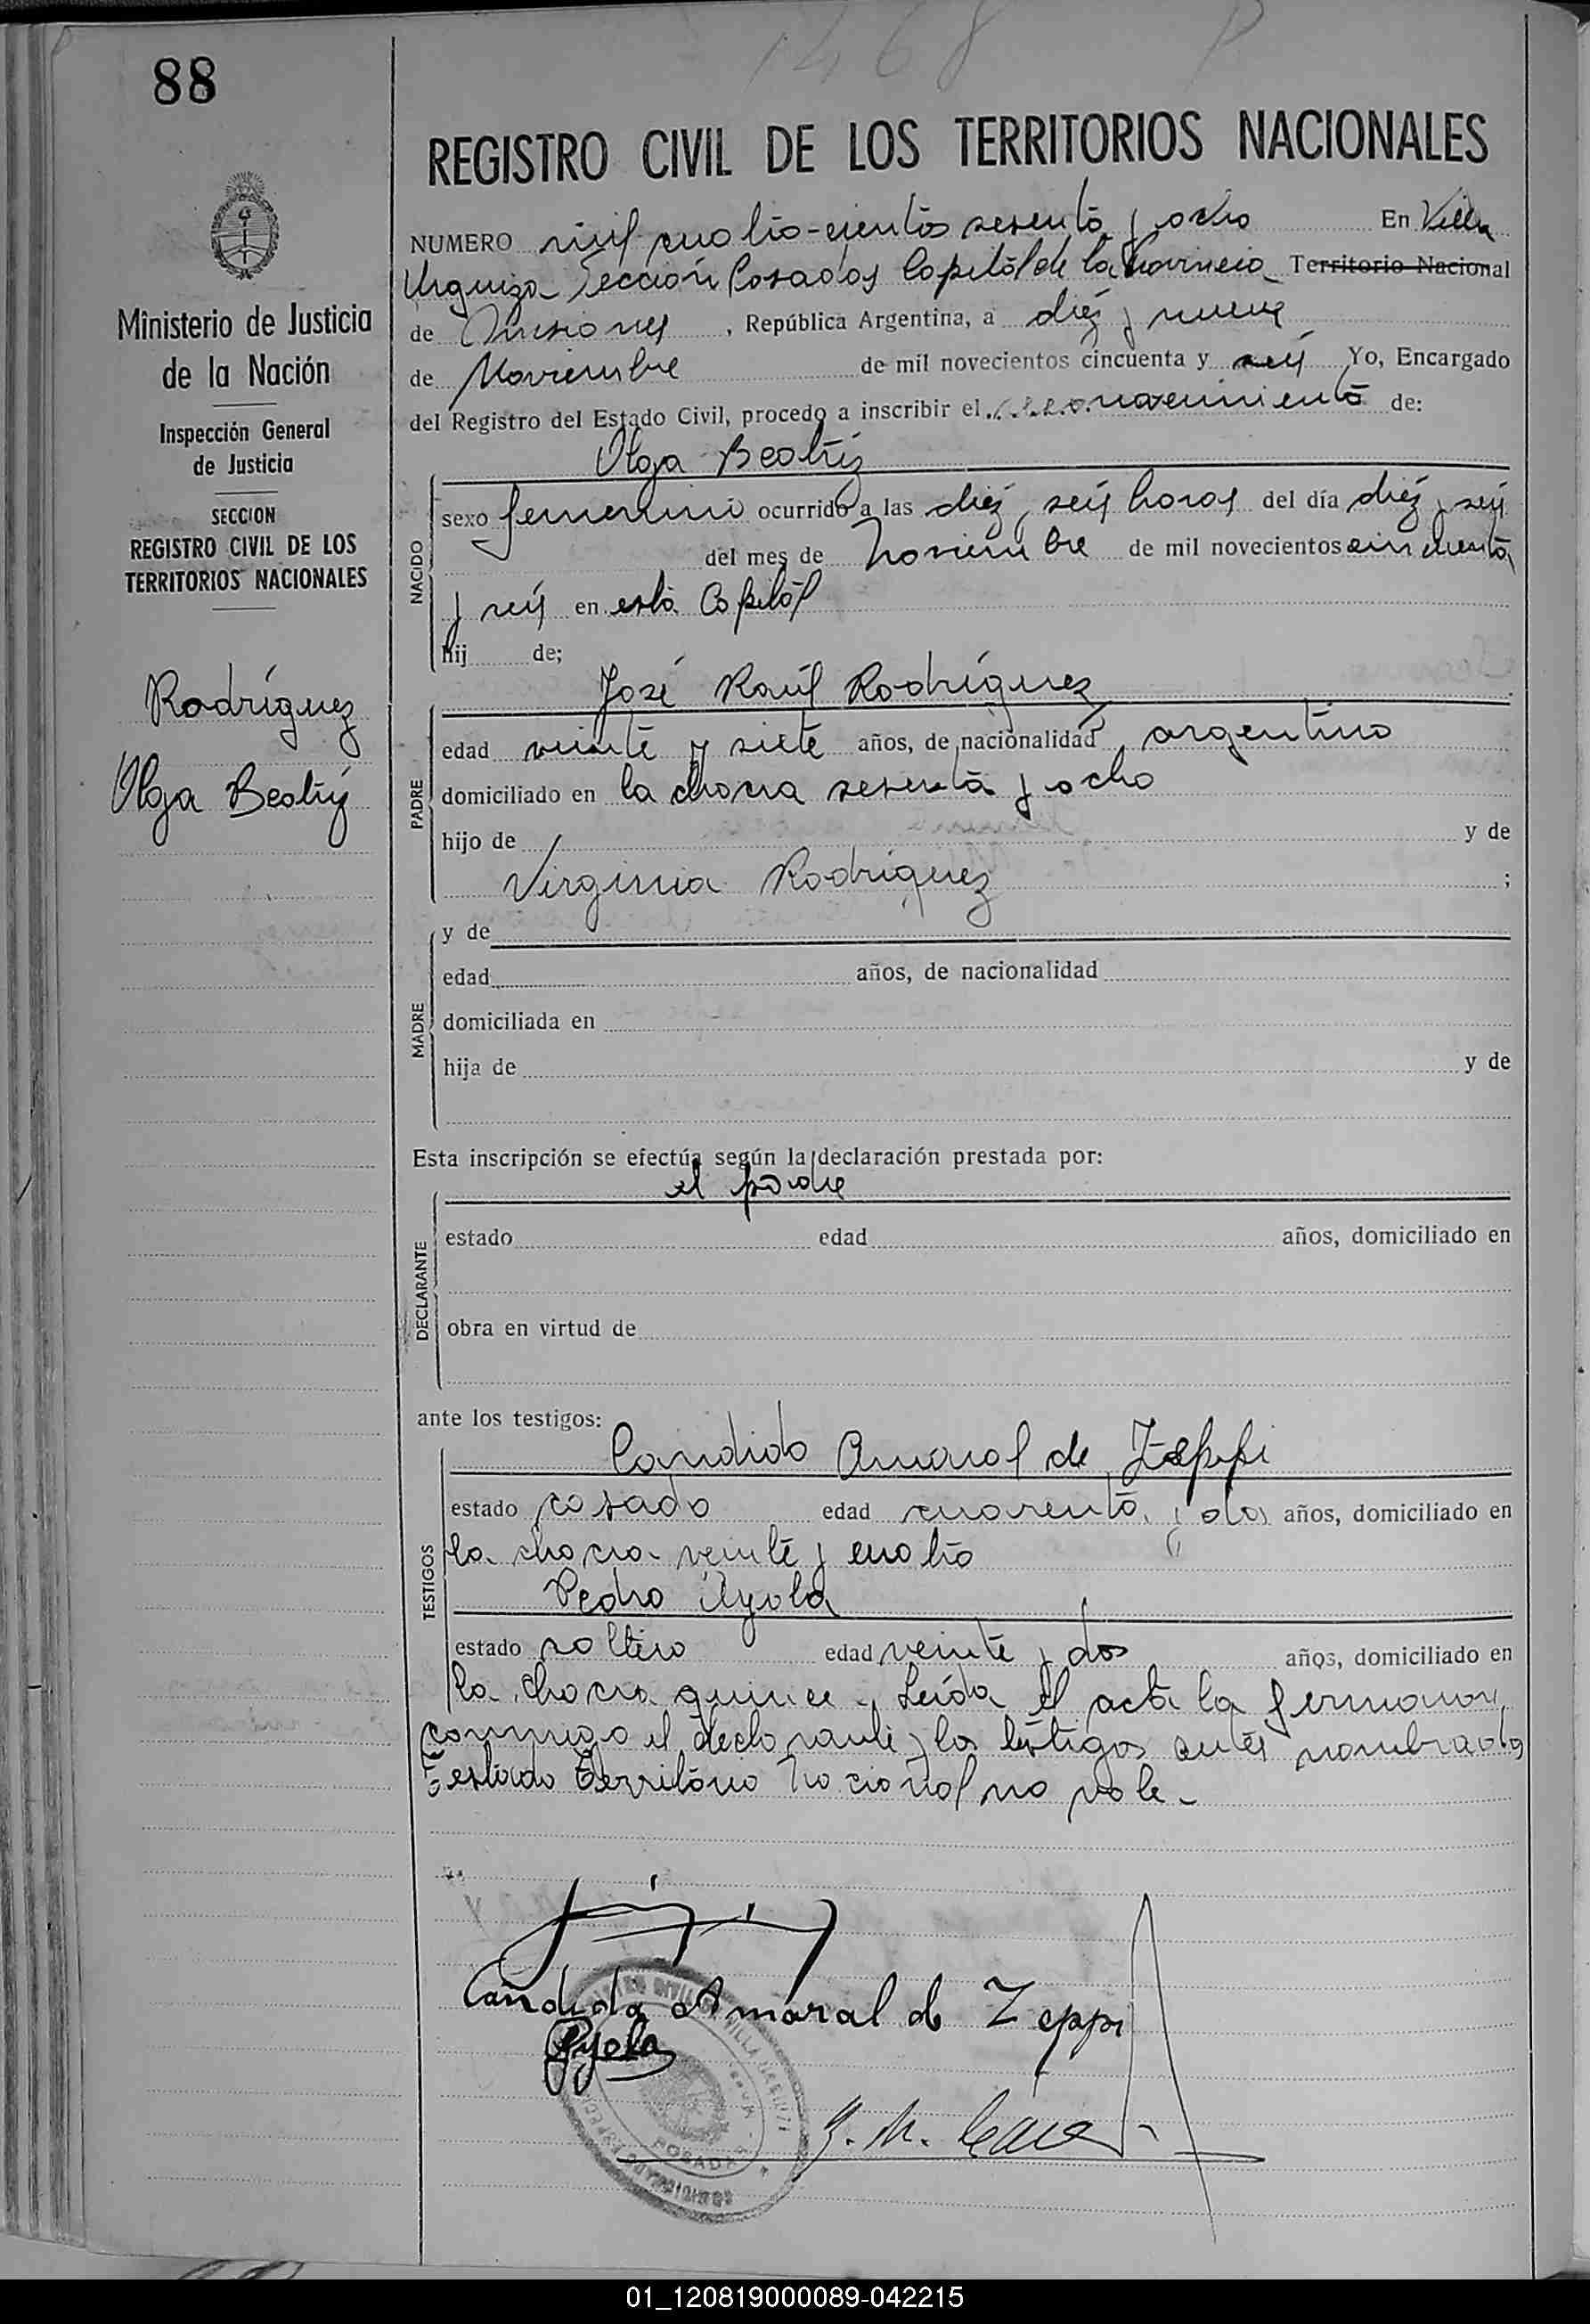 1468 P
88
REGISTRO CIVIL DE LOS TERRITORIOS NACIONALES
NUMERO mil cuatro-cientos sesenta y ocho En Villa
Urquiza Sección Posadas Capital de la Provincia Territorio Nacional
de Misiones, República Argentina, a diez y nueve
de Noviembre de mil novecientos cincuenta y seis Yo, Encargado
del Registro del Estado Civil, procedo a inscribir el nacimiento de:
Olga Beatriz
NACIDO
sexo femenino ocurrido a las diez y seis horas del día diez y seis
del mes de Noviembre de mil novecientos cincuenta
y seis en esta Capital
hij de;
Ministerio de Justicia
de la Nación
Inspección General
de Justicia
SECCION
REGISTRO CIVIL DE LOS
TERRITORIOS NACIONALES
Rodríguez
Olga Beatriz
José Raúl Rodríguez
PADRE
edad veinte y siete años, de nacionalidad argentino
domiciliado en la chacra sesenta y ocho
hijo de y de
Virginia Rodríguez ;
MADRE
y de
edad años, de nacionalidad
domiciliada en
hija de y de
Esta inscripción se efectúa según la declaración prestada por:
el padre
DECLARANTE
estado edad años, domiciliado en
obra en virtud de
ante los testigos:
Candido Amaral de Zeppi
TESTIGOS
estado casado edad cuarenta y dos años, domiciliado en
la chacra veinte y cuatro
Pedro Ayala
estado soltero edad veinte y dos años, domiciliado en
la chacra quince. Leída el acta la firmaron
conmigo el declarante y los testigos antes nombrados
Testado Territorio Nacional no vale.-
Candida Amaral de Zeppi
Ayala
POSADAS
01_120819000089-042215